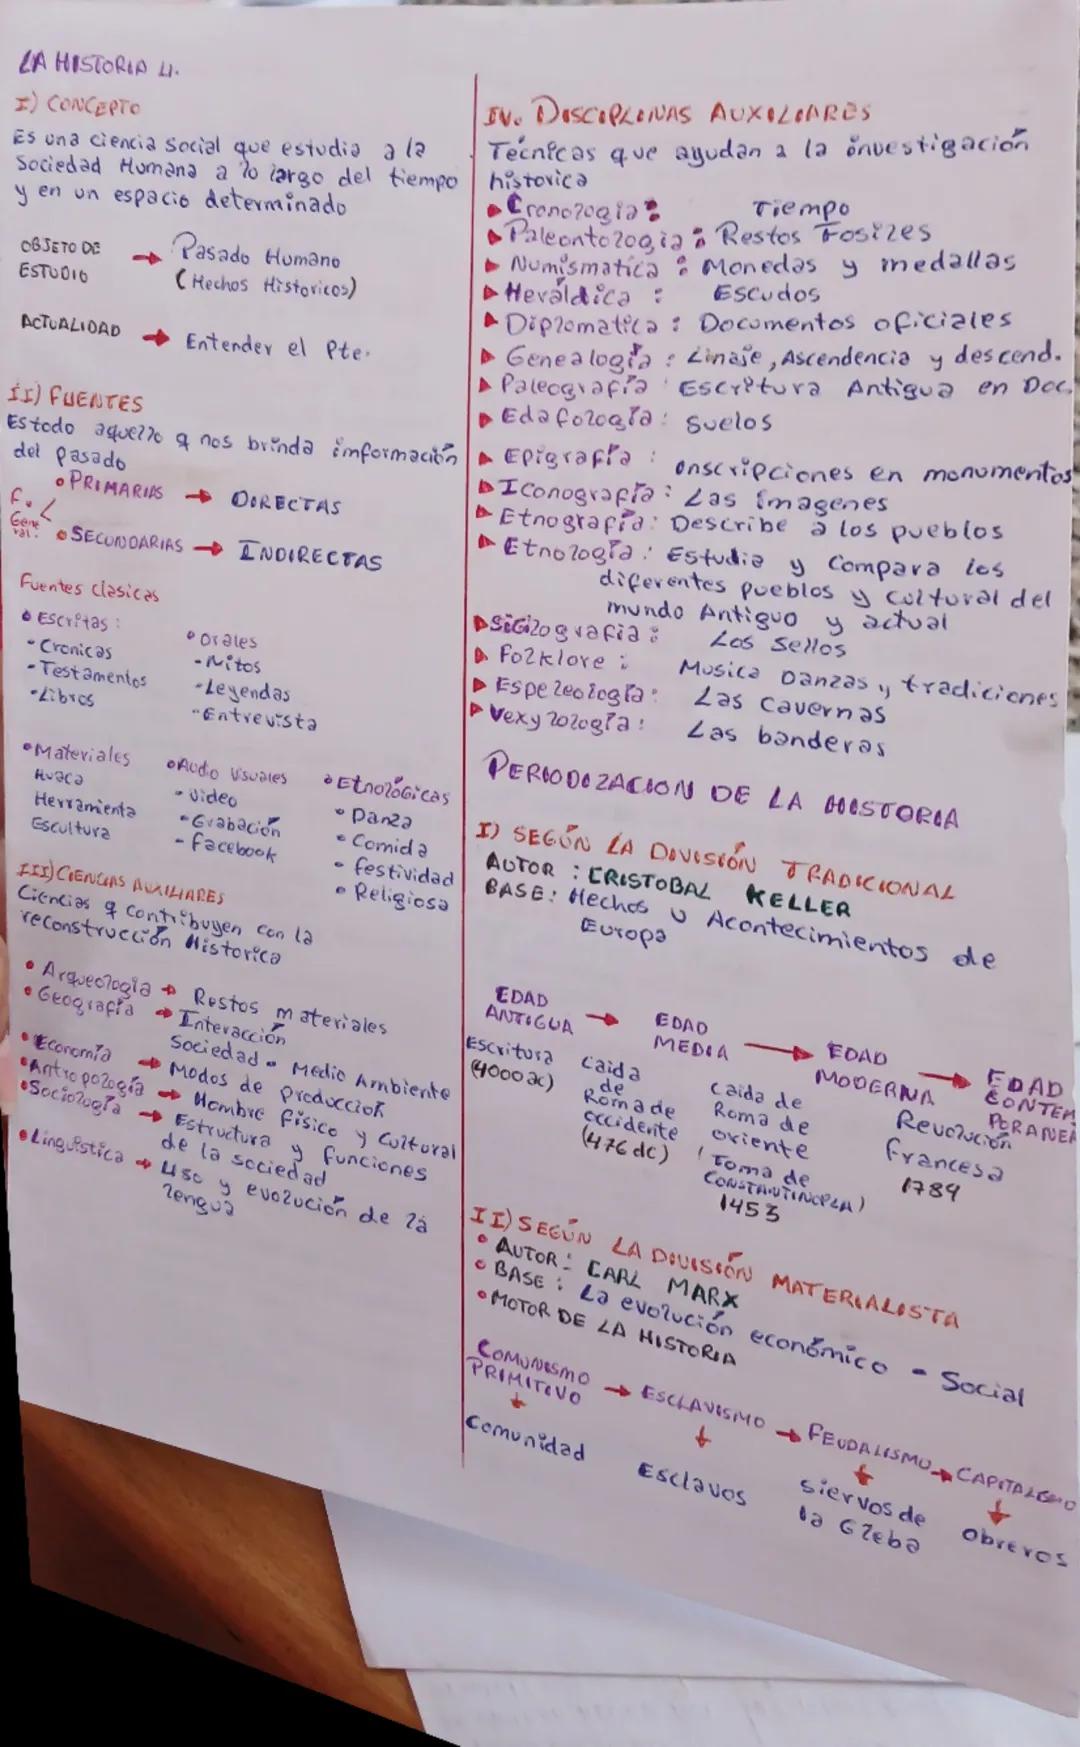 LA HISTORIA
I) CONCEPTO
Es una ciencia social que estudia a la
Sociedad Humana a lo largo del tiempo
y en un espacio determinado
OBJETO DE ESTUDIO → Pasado Humano
(Hechos Historicos)
ACTUALIDAD → Entender el Pte.
II) FUENTES
Es todo aquello q nos brinda información
del pasado
F. General:
• PRIMARIAS → DIRECTAS
• SECUNDARIAS → INDIRECTAS
Fuentes clasicas
• Escritas:
- Cronicas
- Testamentos
- Libros
• Orales
- Mitos
- Leyendas
- Entrevista
• Materiales
Huaca
Herramienta
Escultura
• Audio Visuales
- Video
- Grabación
- facebook
• Etnológicas
• Danza
• Comida
• festividad
• Religiosa
III) CIENCIAS AUXILIARES
Ciencias q contribuyen con la
reconstrucción Historica
• Arqueología → Restos materiales
• Geografía → Interacción
Sociedad - Medio Ambiente
• Economía → Modos de producción
• Antropología → Hombre físico y Cultural
• Sociología → Estructura y funciones
de la sociedad
• Linguística → Uso y evolución de la
lengua
IV. DISCIPLINAS AUXILIARES
Tecnícas que ayudan a la investigación
historica
▸ Cronología: Tiempo
▸ Paleontología: Restos Fosiles
▸ Numismatica: Monedas y medallas
▸ Heráldica: Escudos
▸ Diplomatica: Documentos oficiales
▸ Genealogía: Linaje, Ascendencia y descend.
▸ Paleografía: Escritura Antigua en Doc.
▸ Edafología: Suelos
▸ Epigrafía: inscripciones en monumentos
▸ Iconografía: Las Imagenes
▸ Etnografía: Describe a los pueblos
▸ Etnología: Estudia y Compara los
diferentes pueblos y cultural del
mundo Antiguo y actual
▸ Sigilografia: Los Sellos
▸ Folklore: Musica Danzas y tradiciones
▸ Espeleología: Las Cavernas
▸ Vexylología: Las banderas
PERIODIZACION DE LA HISTORIA
I) SEGÚN LA DIVISIÓN TRADICIONAL
AUTOR: CRISTOBAL KELLER
BASE: Hechos u Acontecimientos de
Europa
EDAD ANTIGUA → EDAD MEDIA → EDAD MODERNA → EDAD CONTEMPORANEA
Escritura
(4000 ac)
Caida
de
Roma de
occidente
(476 dC)
Caida de
Roma de
oriente
(Toma de
CONSTANTINOPLA)
1453
Revolución
francesa
1789
II) SEGÚN LA DIVISIÓN MATERIALISTA
• AUTOR: CARL MARX
• BASE: La evolución económico - Social
• MOTOR DE LA HISTORIA
COMUNISMO PRIMITIVO → ESCLAVISMO → FEUDALISMO → CAPITALISMO
Comunidad
Esclavos
Siervos de
la Gleba
Obreros